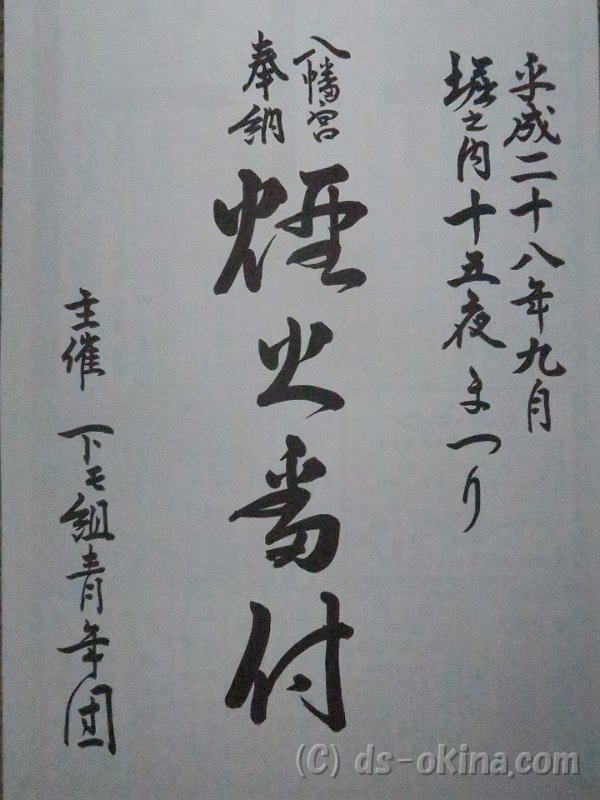 平成二十八年九月
堀之内十五夜まつり
八幡宮
奉納
煙火番付
主催 下モ組青年団
(C) ds-okina.com